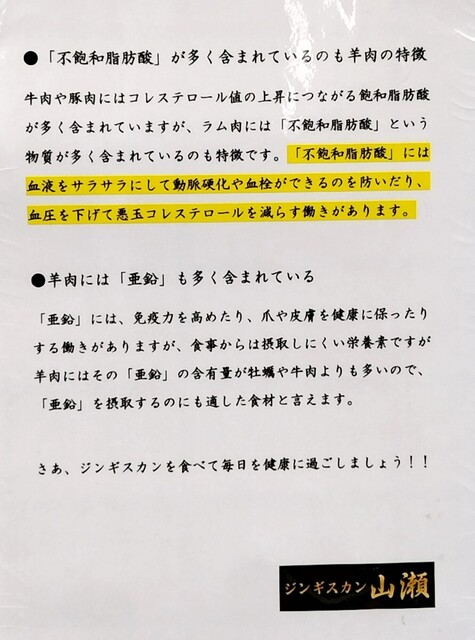 ●「不飽和脂肪酸」が多く含まれているのも羊肉の特徴
牛肉や豚肉にはコレステロール値の上昇につながる飽和脂肪酸
が多く含まれていますが、ラム肉には「不飽和脂肪酸」という
物質が多く含まれているのも特徴です。「不飽和脂肪酸」には
血液をサラサラにして動脈硬化や血栓ができるのを防いだり、
血圧を下げて悪玉コレステロールを減らす働きがあります。
●羊肉には「亜鉛」も多く含まれている
「亜鉛」には、免疫力を高めたり、爪や皮膚を健康に保ったり
する働きがありますが、食事からは摂取しにくい栄養素ですが
羊肉にはその「亜鉛」の含有量が牡蠣や牛肉よりも多いので、
「亜鉛」を摂取するのにも適した食材と言えます。
さあ、ジンギスカンを食べて毎日を健康に過ごしましょう！！
ジンギスカン 山瀬